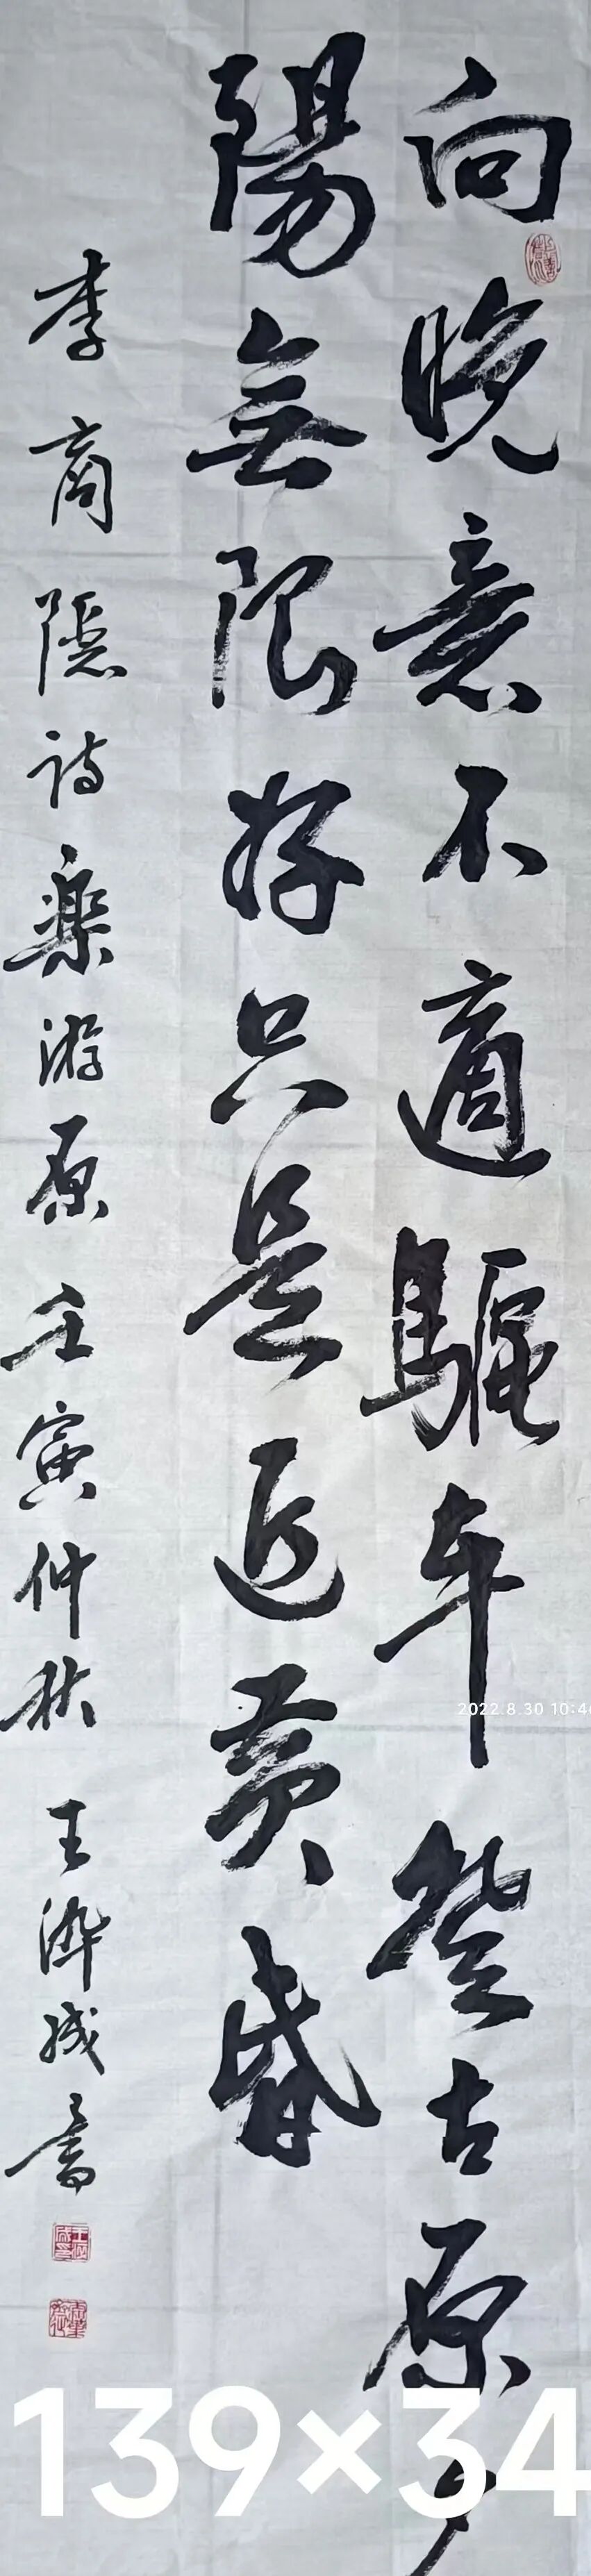 向晚意不適驅車登古原夕
陽無限好只是近黃昏
李商隱詩樂游原 壬寅仲秋 王 成書
2022.8.30 10:46
139×34